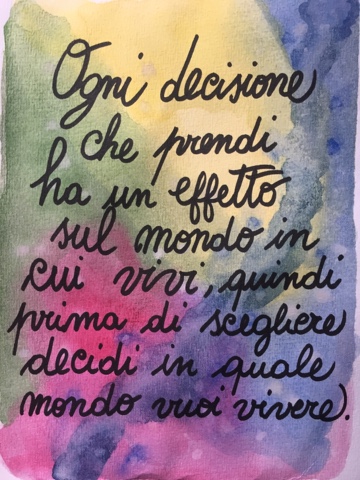 Ogni decisione
che prendi
ha un effetto
sul mondo in
cui vivi, quindi
prima di scegliere
decidi in quale
mondo vuoi vivere.